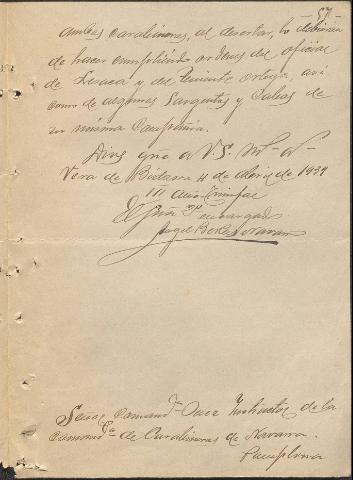 57
ambos carabineros, al desertar, lo debieron
de hacer cumpliendo ordenes del oficial
de Lesaca y del teniente Ortega, así
como de algunos Sargentos y Cabos de
su misma Compañía.
Dios gñe a V.S. m- a-
Vera de Bidasoa 4 de Abril de 1939
III Año Triunfal
El encargado
Angel Navarro
Señor Comandte Juez Instructor de la
Comandcia de Carabineros de Navarra.
Pamplona